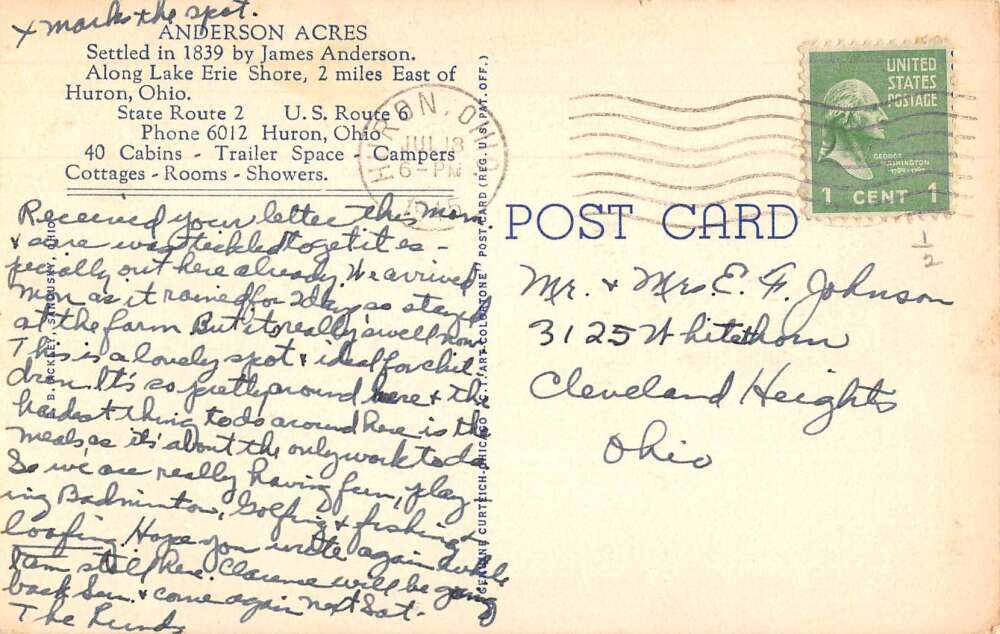 x marks the spot.
ANDERSON ACRES
Settled in 1839 by James Anderson.
Along Lake Erie Shore, 2 miles East of
Huron, Ohio.
State Route 2 U.S. Route 6
Phone 6012 Huron, Ohio
40 Cabins - Trailer Space - Campers
Cottages - Rooms - Showers.
Received your letter this morn
& sure was teckled to get it es-
pecially out here already. We arrived
Mon as it rained for 2 days so stayed
at the farm But it's really swell now
This is a lovely spot & ideal for chil
dren. It's so pretty around here & the
hardest thing to do around here is the
meals as it's about the only work to do.
So we are really having fun, play-
ing Badminton, Golfing & fishing &
loafing. Hope you write again while
I am still here. Clarence will be going
back Sun. & come again next Sat-
The
B. ACKLEY, SANDUSKY, OHIO
"GENUINE CURTEICH-CHICAGO "C.T. ART-COLORTONE" POST CARD (REG. U.S. PAT. OFF.)
HURON, OHIO
JUL 18
6-PM
POST CARD
UNITED
STATES
POSTAGE
GEORGE
WASHINGTON
1 CENT 1
1/2
Mr. & Mrs. E. F. Johnson
3125 Whitethorn
Cleveland Heights
Ohio